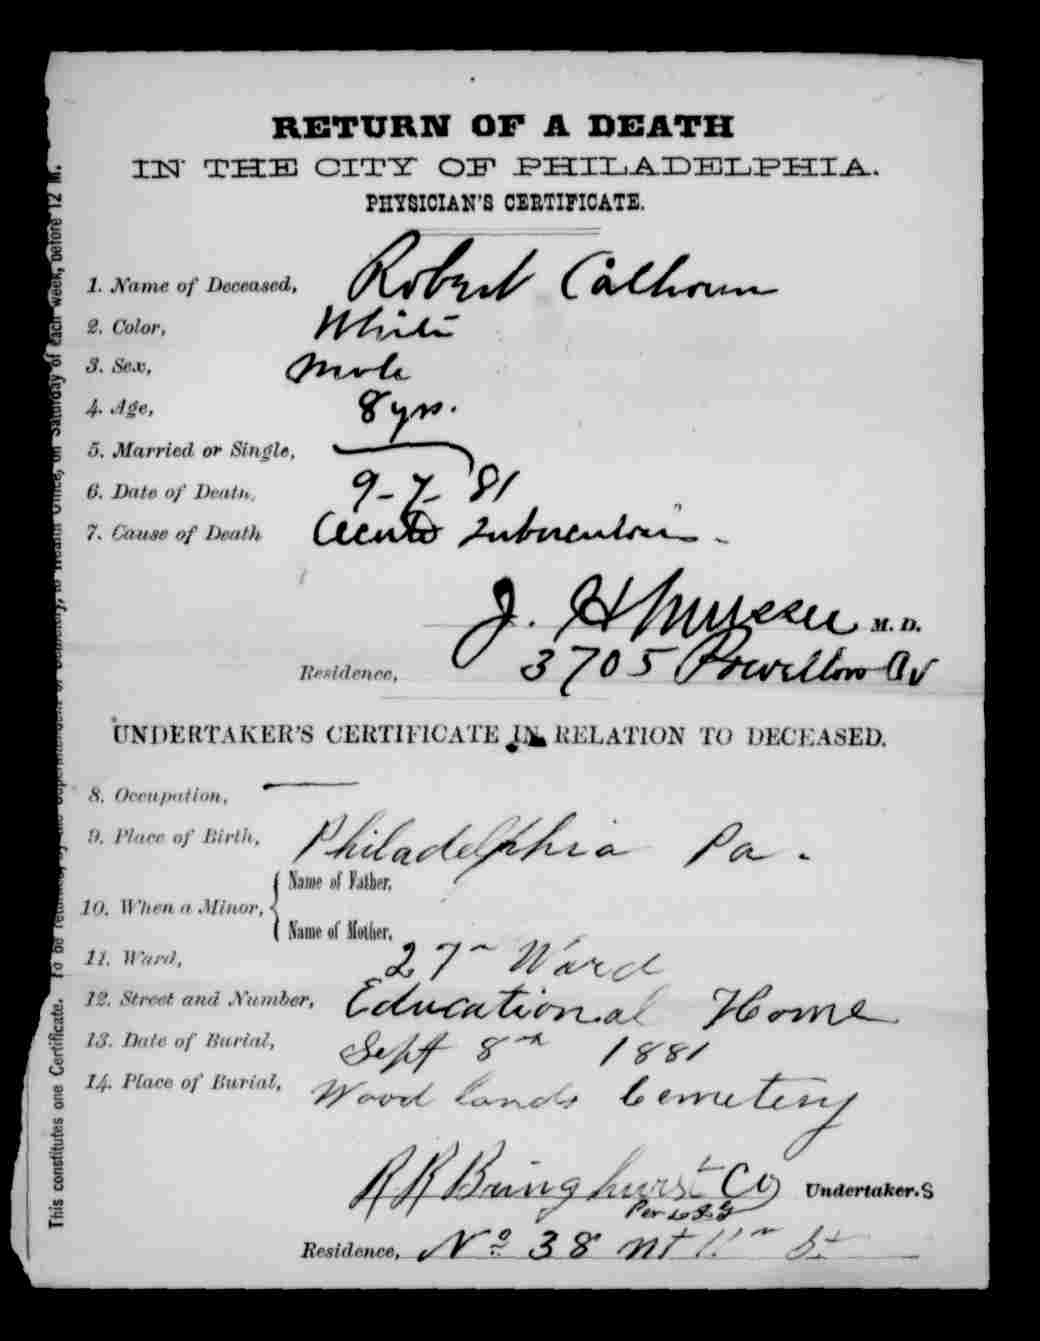 RETURN OF A DEATH
IN THE CITY OF PHILADELPHIA.
PHYSICIAN'S CERTIFICATE.
1. Name of Deceased, Robert Calhoun
2. Color, White
3. Sex, Male
4. Age, 8 yrs.
5. Married or Single,
6. Date of Death, 9-7-81
7. Cause of Death Acute Tuberculosis -
J. H Musser M. D.
Residence, 3705 Powelton Av
UNDERTAKER'S CERTIFICATE IN RELATION TO DECEASED.
8. Occupation,
9. Place of Birth, Philadelphia Pa.
10. When a Minor, { Name of Father,
Name of Mother,
11. Ward, 27th Ward
12. Street and Number, Educational Home
13. Date of Burial, Sept 8th 1881
14. Place of Burial, Woodlands Cemetery
R R Bringhurst Co Undertaker.S
Per
Residence, No. 38 Nt 11th St
This constitutes one Certificate. To be returned, to Health Office, on Saturday of each week, before 12 M.